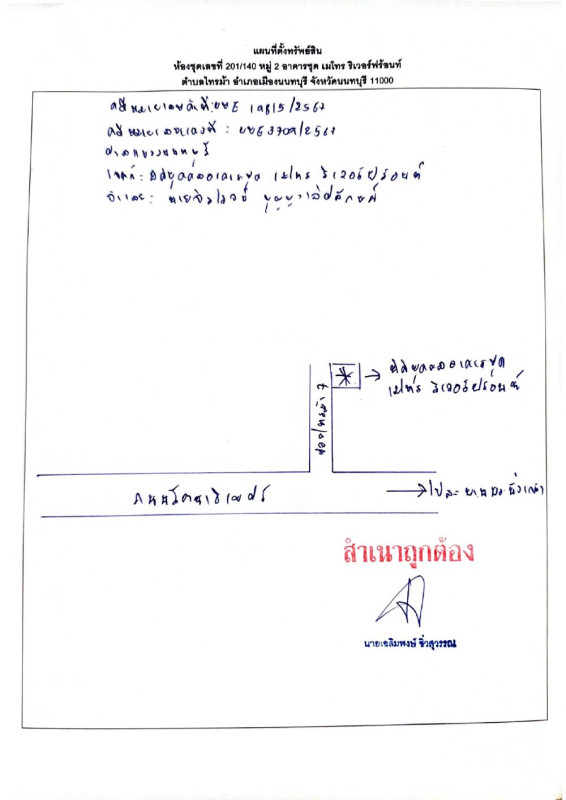 แผนที่ตั้งทรัพย์สิน
ห้องชุดเลขที่ 201/140 หมู่ 2 อาคารชุด เมโทร ริเวอร์ฟร้อนท์
ตำบลไทรม้า อำเภอเมืองนนทบุรี จังหวัดนนทบุรี 11000
คดีหมายเลขดำที่
คดีหมายเลขแดงที่ :
ศาลแขวงนนทบุรี
โจทก์ : นิติบุคคลอาคารชุด เมโทร ริเวอร์ฟร้อนท์
จำเลย :
นิติบุคคลอาคารชุด
เมโทร ริเวอร์ฟร้อนท์
ซอยไทรม้า 7
ถนนรัตนาธิเบศร์
ไปสะพานพระนั่งเกล้า
สำเนาถูกต้อง
นายเฉลิมพงษ์ ชิ่วสุวรรณ